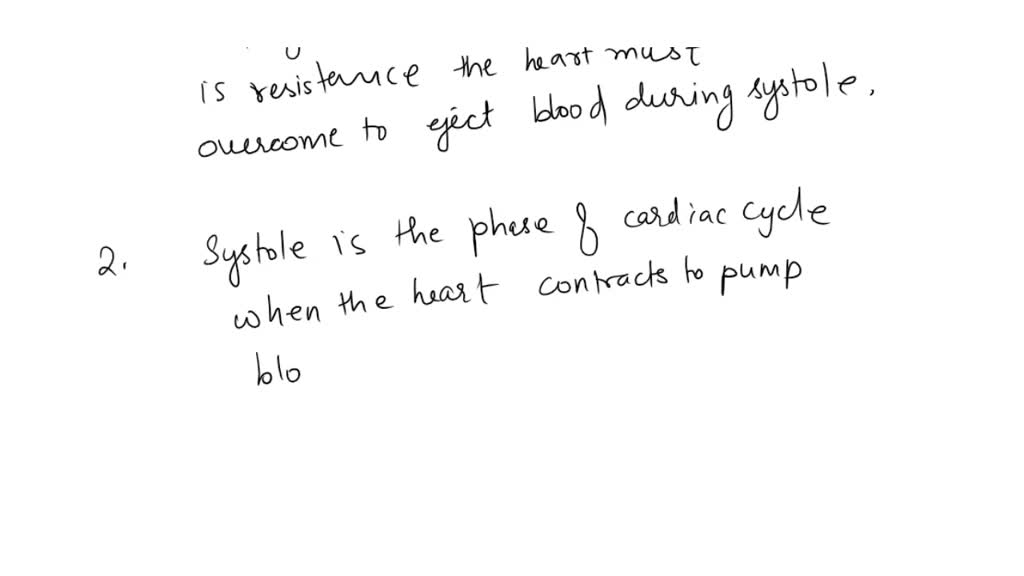 is resistance the heart must
overcome to eject blood during systole.
2. Systole is the phase of cardiac cycle
when the heart contracts to pump
blo